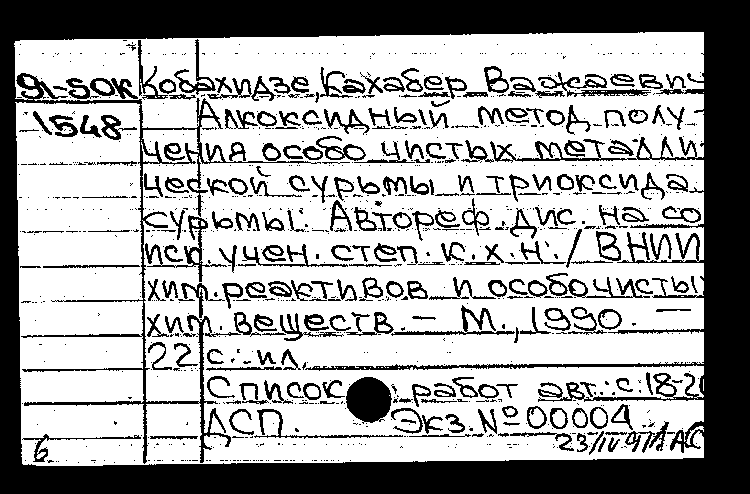 91-50к Кобахидзе, Кахабер Важаевич
1548 Алкоксидный метод полу-
чения особо чистых металли-
ческой сурьмы и триоксида
сурьмы: Автореф. дис. на со
иск. учен. степ. к. х. н. / ВНИИ
хим. реактивов и особо чисты
хим. веществ. — М., 1990. —
22 с.: ил.
Список работ авт.: с. 18-20
ДСП. Экз. № 00004
6. 23/IV 91